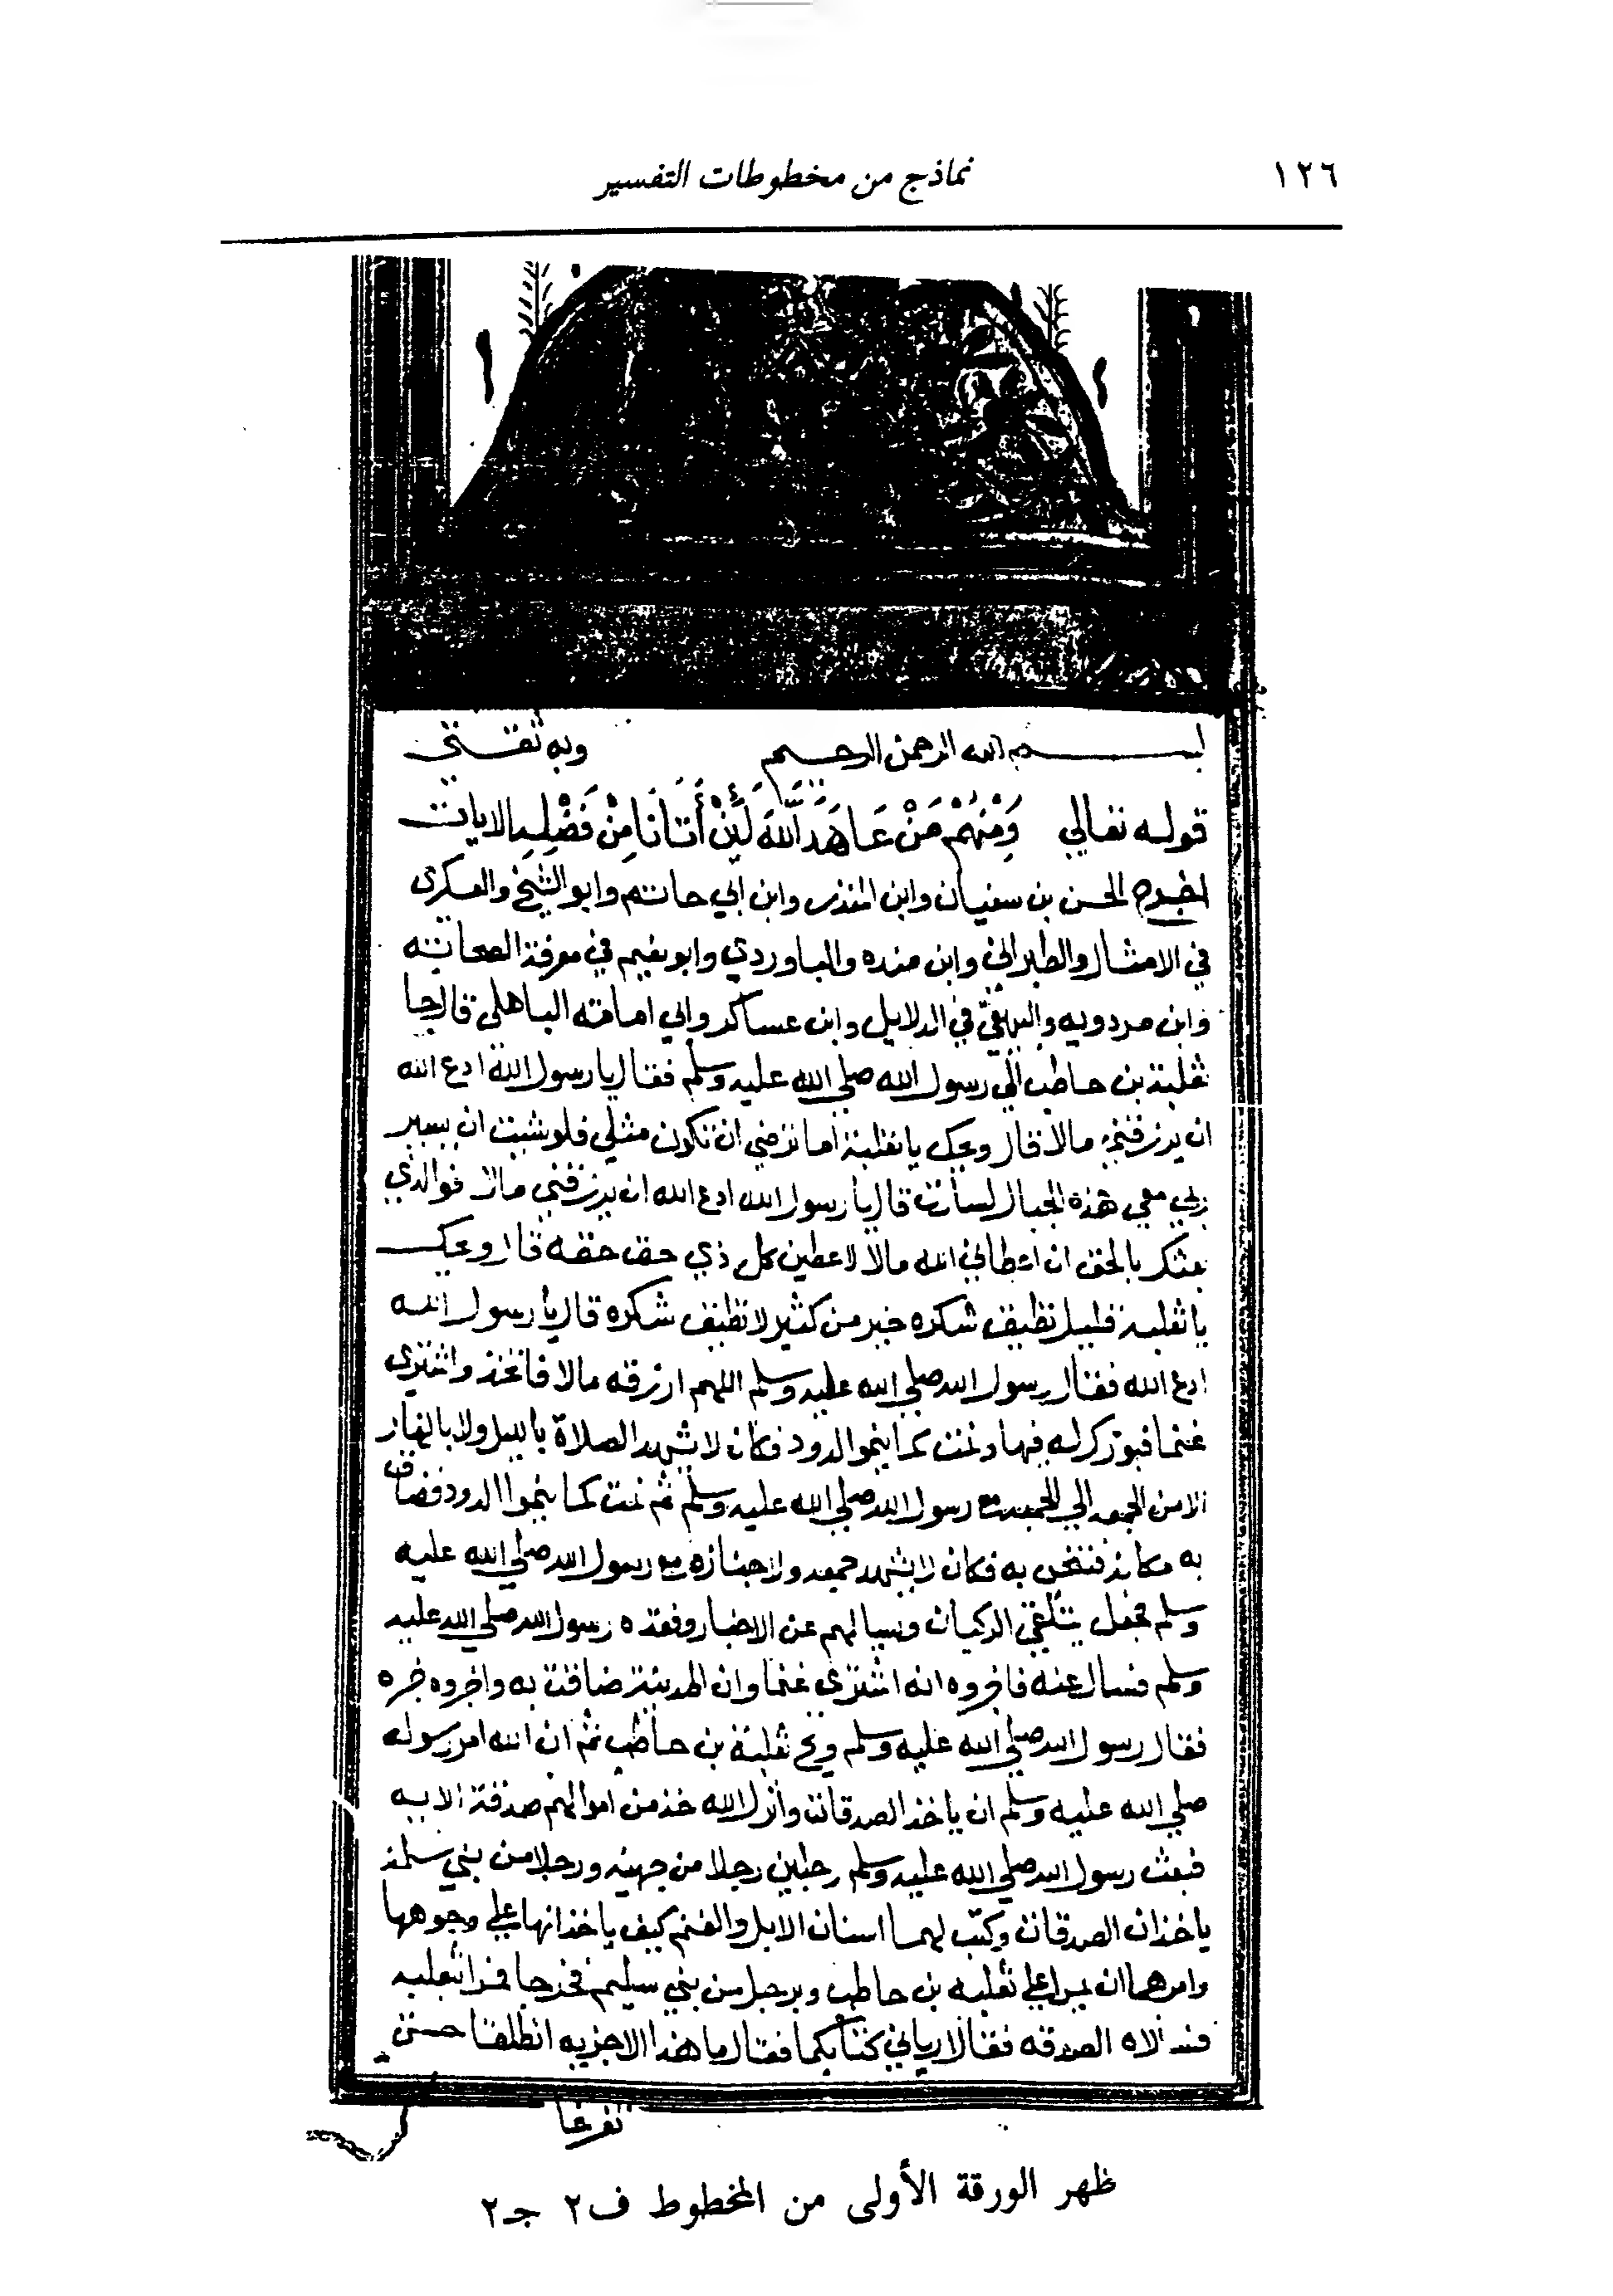 ١٢٦ نماذج من مخطوطات التفسير
بسم الله الرحمن الرحيم وبه ثقتي
قوله تعالي وَمِنْهُم مَنْ عَاهَدَ اللَّهَ لَئِنْ أَتَانَا مِنْ فَضْلِهِ الايات
اخرج الحسن بن سفيان وابن المنذر وابن ابي حاتم وابو الشيخ والعسكرى
في الامثال والطبراني وابن منده والباوردي وابو نعيم في معرفة الصحابته
وابن مردويه والبيهقي في الدلايل وابن عساكر وابي امامته الباهلى قال جا
ثعلبة بن حاطب الي رسول الله صلي الله عليه وسلم فقال يا رسول الله ادع الله
ان يرزقني مالا قال ويحك يا ثعلبة اما ترضي ان تكون مثلي فلو شيت ان يسير
ربي معي هذه الجبال لسارت قال يا رسول الله ادع الله ان يرزقني مالا فوالذي
بعثك بالحق ان اعطاني الله مالا لاعطين كل ذي حق حقه قال ويحك
يا ثعلبة قليل تطيق شكره خير من كثير لا تطيق شكره قال يا رسول الله
ادع الله فقال رسول الله صلي الله عليه وسلم اللهم ارزقه مالا فاتخذ واشترى
غنما فبورك له فيها ونمت كما ينموا الدود فكان لا يشهد الصلاة بالليل ولا بالنهار
الا من الجمعه الي الجمعة مع رسول الله صلي الله عليه وسلم ثم نمت كما ينموا الدود فضاق
به مكانه فتنحى به فكان لا يشهد جمعه ولا جنازه مع رسول الله صلي الله عليه
وسلم فجعل يتلقي الركبان ويسالهم عن الاخبار وفقده رسول الله صلي الله عليه
وسلم فسال عنه فاخبروه انه اشترى غنما وان المدينة ضاقت به واخبروه خبره
فقال رسول الله صلي الله عليه وسلم ويح ثعلبة بن حاطب ثم ان الله امر رسوله
صلي الله عليه وسلم ان ياخذ الصدقات وانزل الله خذ من اموالهم صدقة الايه
فبعث رسول الله صلي الله عليه وسلم رجلين رجلا من جهينه ورجلا من بني سلمة
ياخذان الصدقات وكتب لهما اسنان الابل والغنم كيف ياخذانها علي وجوهها
وامرهما ان يمرا علي ثعلبه بن حاطب وبرجل من بني سليم فخرجا فمرا بثعلبه
فسالاه الصدقه فقال ارياني كتابكما فقال ما هذا الا جزيه انطلقا حتى
تفرغا
ظهر الورقة الأولى من المخطوط ف٢ جـ٢